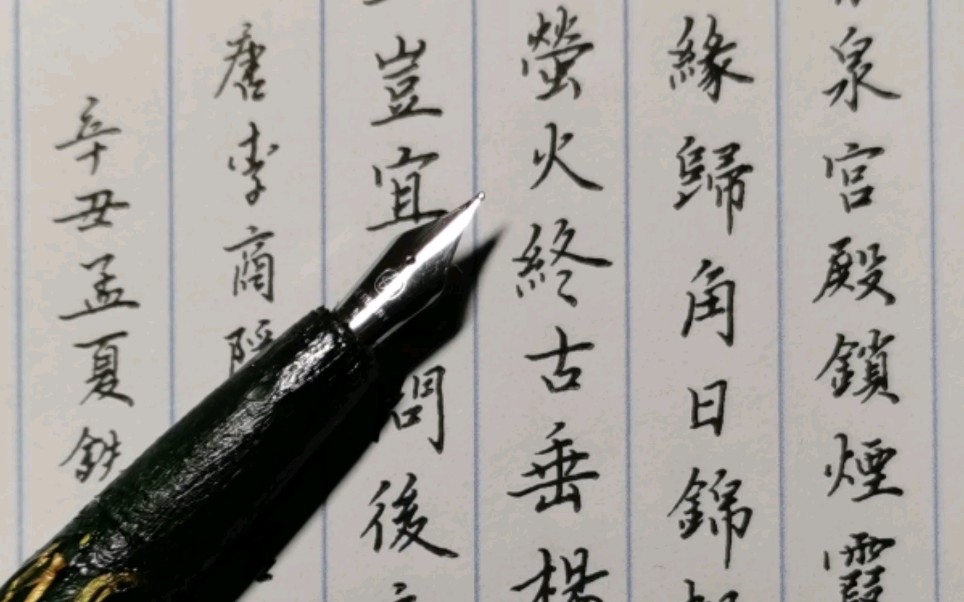 泉宮殿鎖煙霞
緣歸角日錦
螢火終古垂楊
豈宜問後
唐李商隱
辛丑孟夏